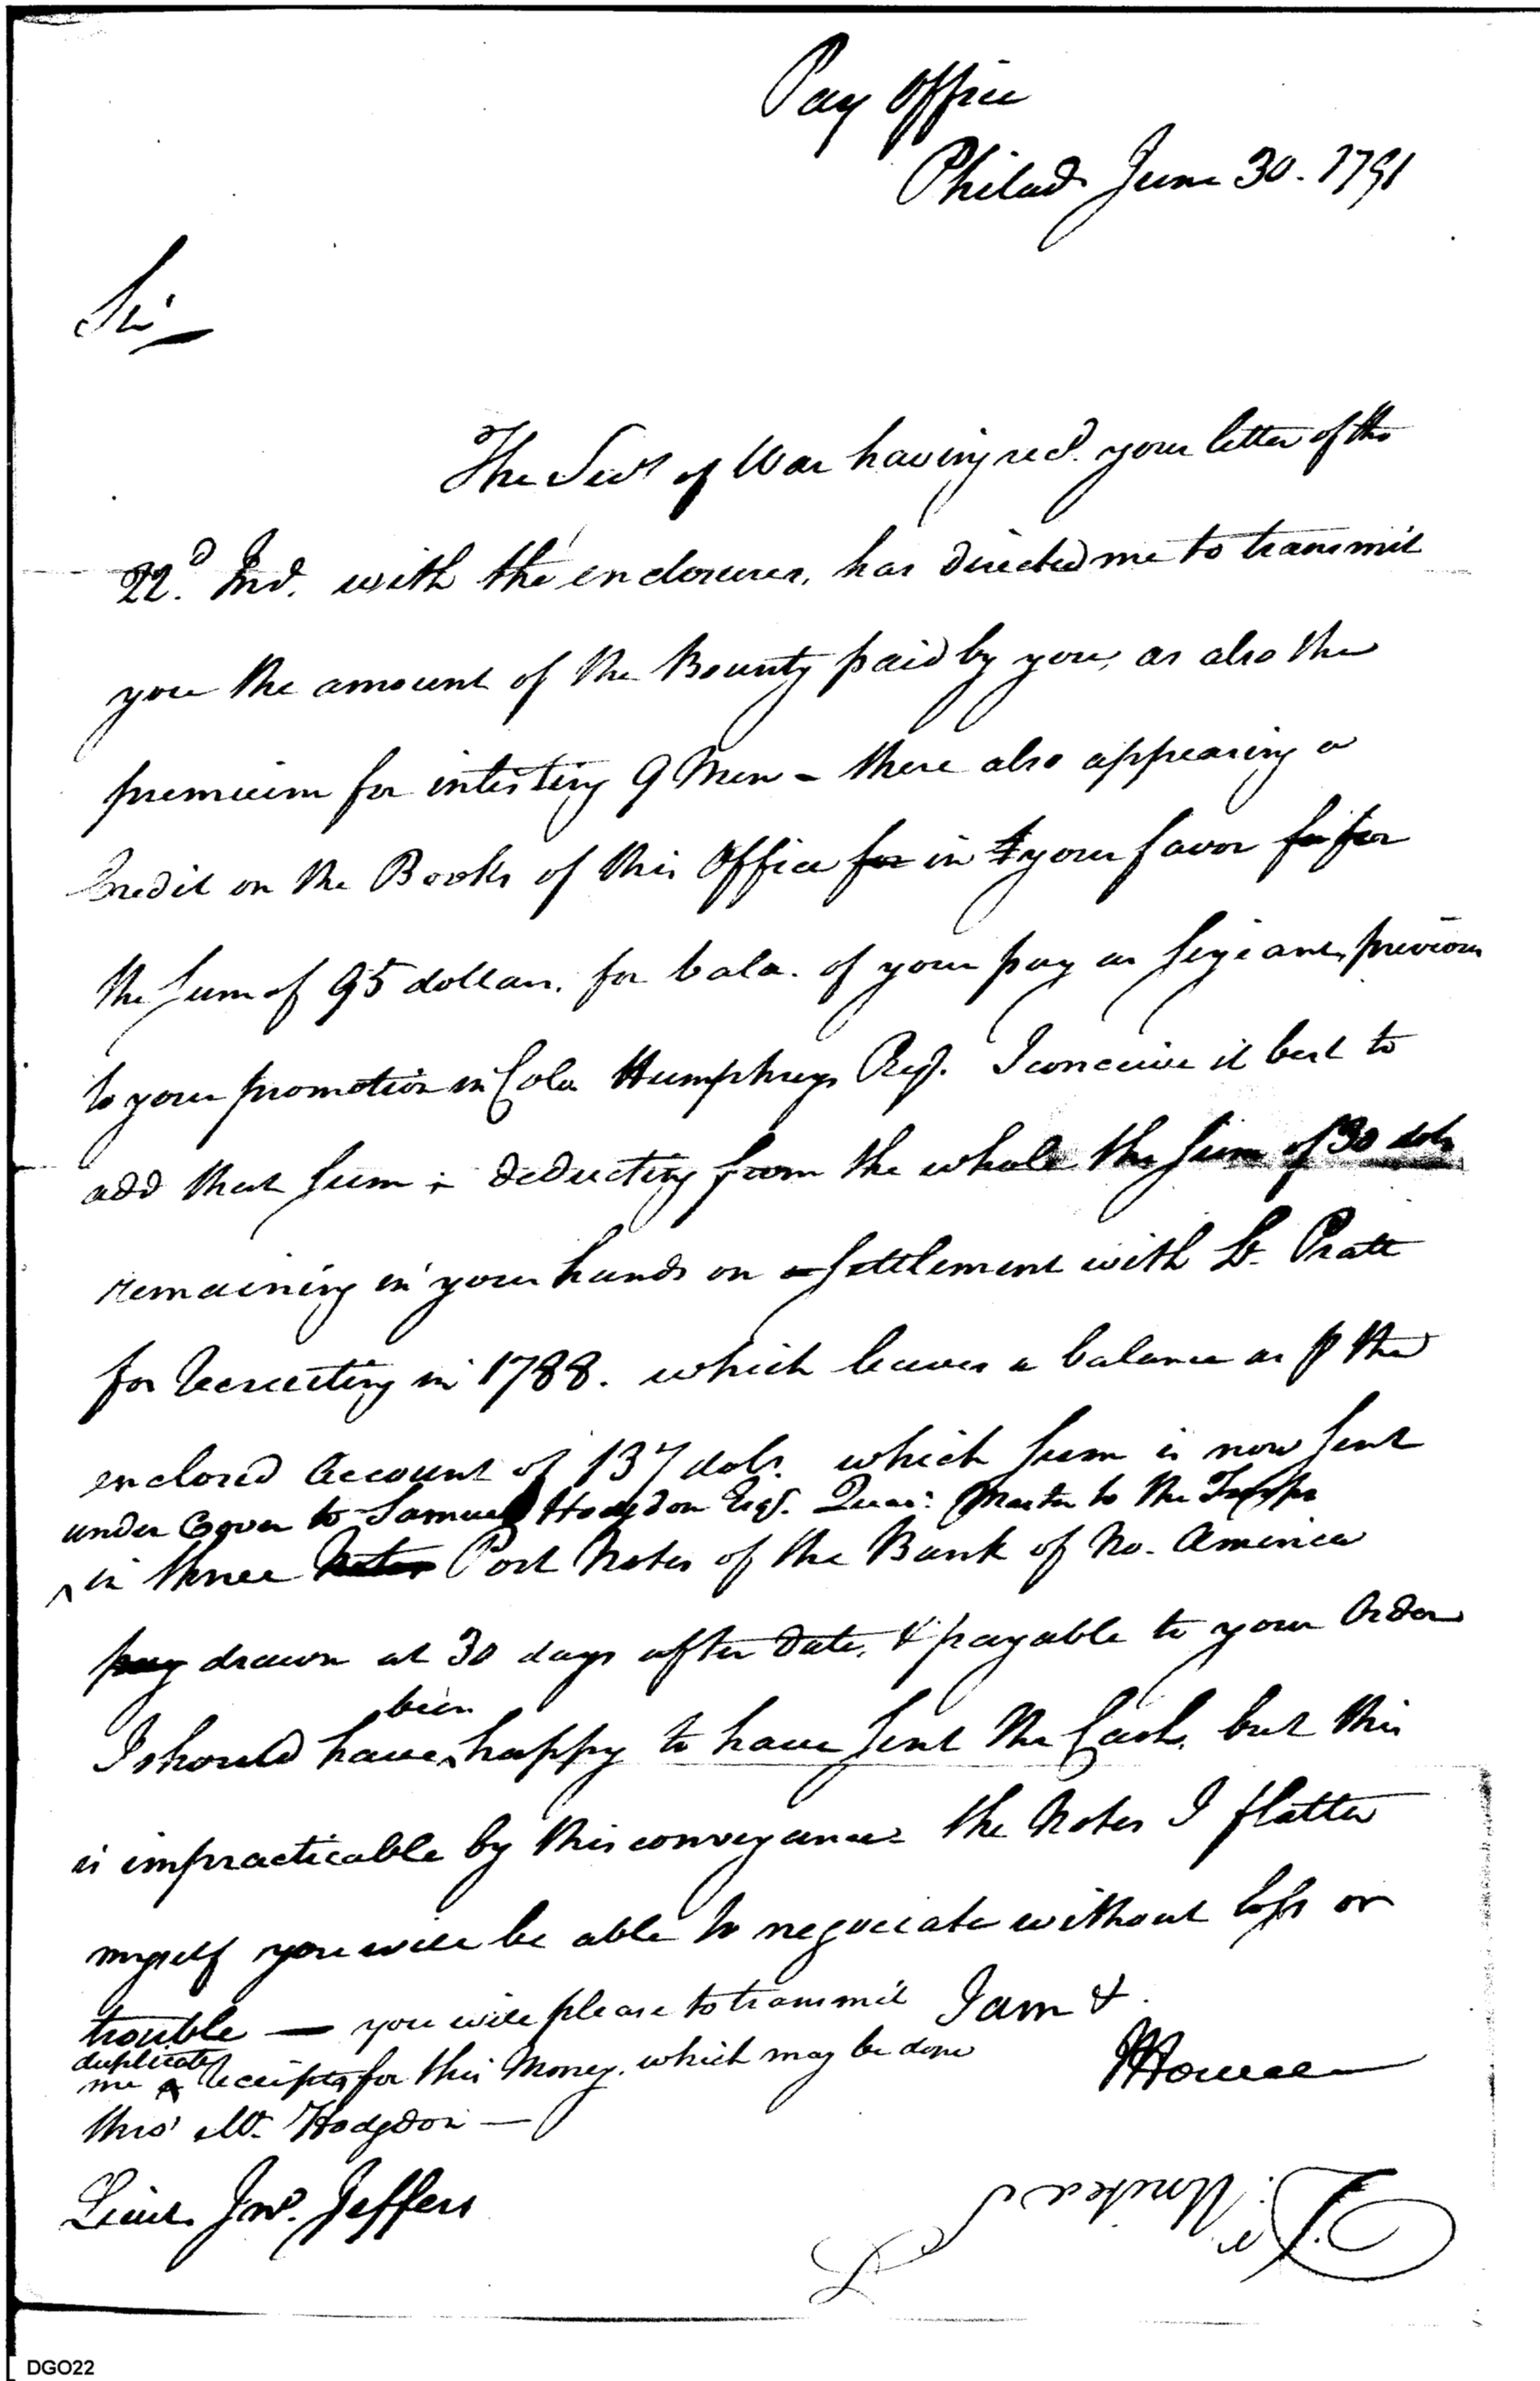 Pay Office
Philad. June 30. 1791
Sir
The Secy of War having recd. your letter of the
22.d Inst. with the enclosures, has directed me to transmit
you the amount of the Bounty paid by you, as also the
premium for inlisting 9 Men - there also appearing a
Credit on the Books of this Office for in your favor for for
the sum of 95 dollars. for bala. of your pay as serjeant, previous
to your promotion in Colo Humphreys Regt. I conceive it best to
add that sum & deducting from the whole the sum of 30 dols
remaining in your hands on a settlement with Lt. Pratt
for recruiting in 1788. which leaves a balance as p the
enclosed account of 137 dols. which sum is now sent
under cover to Samuel Hodgdon Esqr. Quar: Master to the Troops
^ in three Notes Post Notes of the Bank of No. America
pay drawn at 30 days after date, & payable to your Order
been
I should have ^ happy to have sent the Cash, but this
is impracticable by this conveyance the Notes I flatter
myself you will be able to negociate without loss or
trouble — you will please to transmit I am &.
duplicate
me a receipts for this Money. which may be done
thro' Mr. Hodgdon —
JHowell
Lieut. Jno. Jeffers
United S